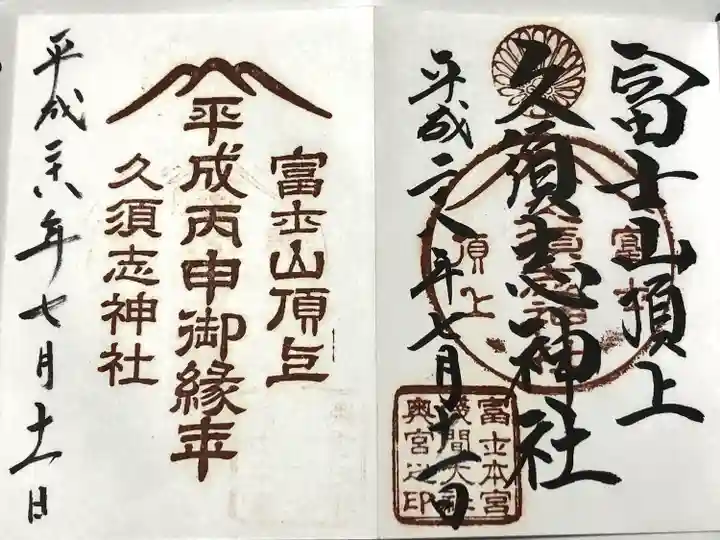 冨士山頂上
久須志神社
平成二十八年七月十一日
富士山
頂上
富士本宮
浅間大社
奥宮之印
富士山頂上
平成丙申御縁年
久須志神社
平成二十八年七月十一日